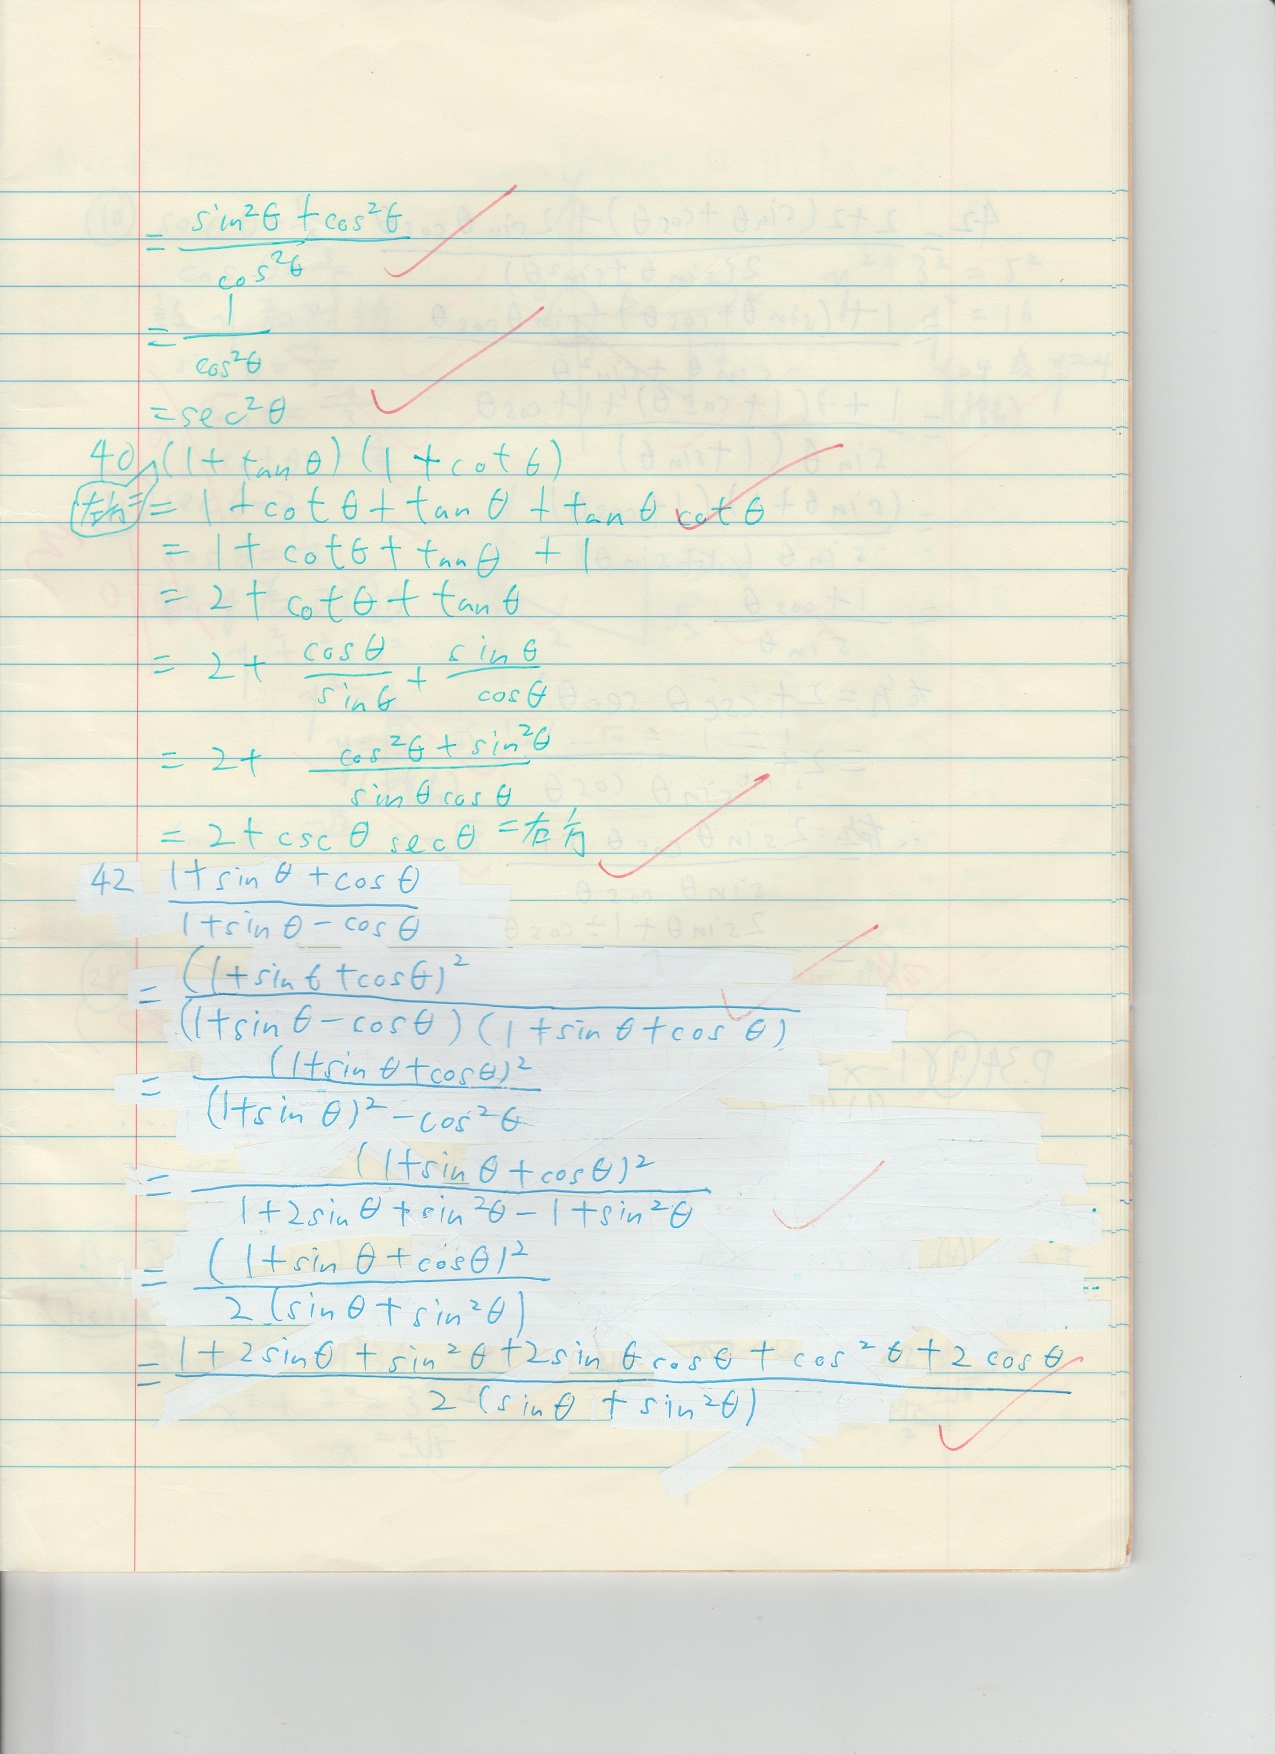 = (sin²θ + cos²θ) / cos²θ
= 1 / cos²θ
= sec²θ
40 (1+tanθ)(1+cotθ)
左方= = 1+cotθ+tanθ+tanθ cotθ
= 1+cotθ+tanθ+1
= 2+cotθ+tanθ
= 2+ cosθ/sinθ + sinθ/cosθ
= 2+ (cos²θ+sin²θ) / (sinθ cosθ)
= 2+cscθ secθ =右方
42 (1+sinθ+cosθ) / (1+sinθ-cosθ)
= (1+sinθ+cosθ)² / (1+sinθ-cosθ)(1+sinθ+cosθ)
= (1+sinθ+cosθ)² / (1+sinθ)²-cos²θ
= (1+sinθ+cosθ)² / 1+2sinθ+sin²θ-1+sin²θ
= (1+sinθ+cosθ)² / 2(sinθ+sin²θ)
= 1+2sinθ+sin²θ+2sinθcosθ+cos²θ+2cosθ / 2(sinθ+sin²θ)